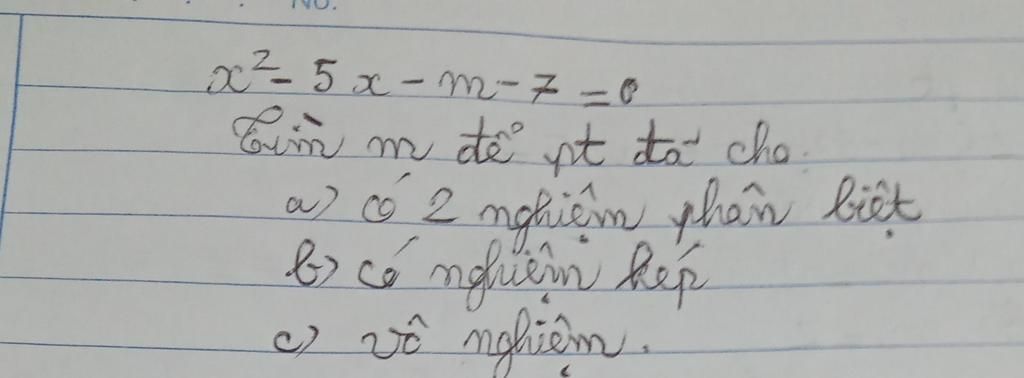 No.
x² - 5x - m - 7 = 0
Tìm m để pt đã cho.
a) có 2 nghiệm phân biệt
b) có nghiệm kép
c) vô nghiệm.